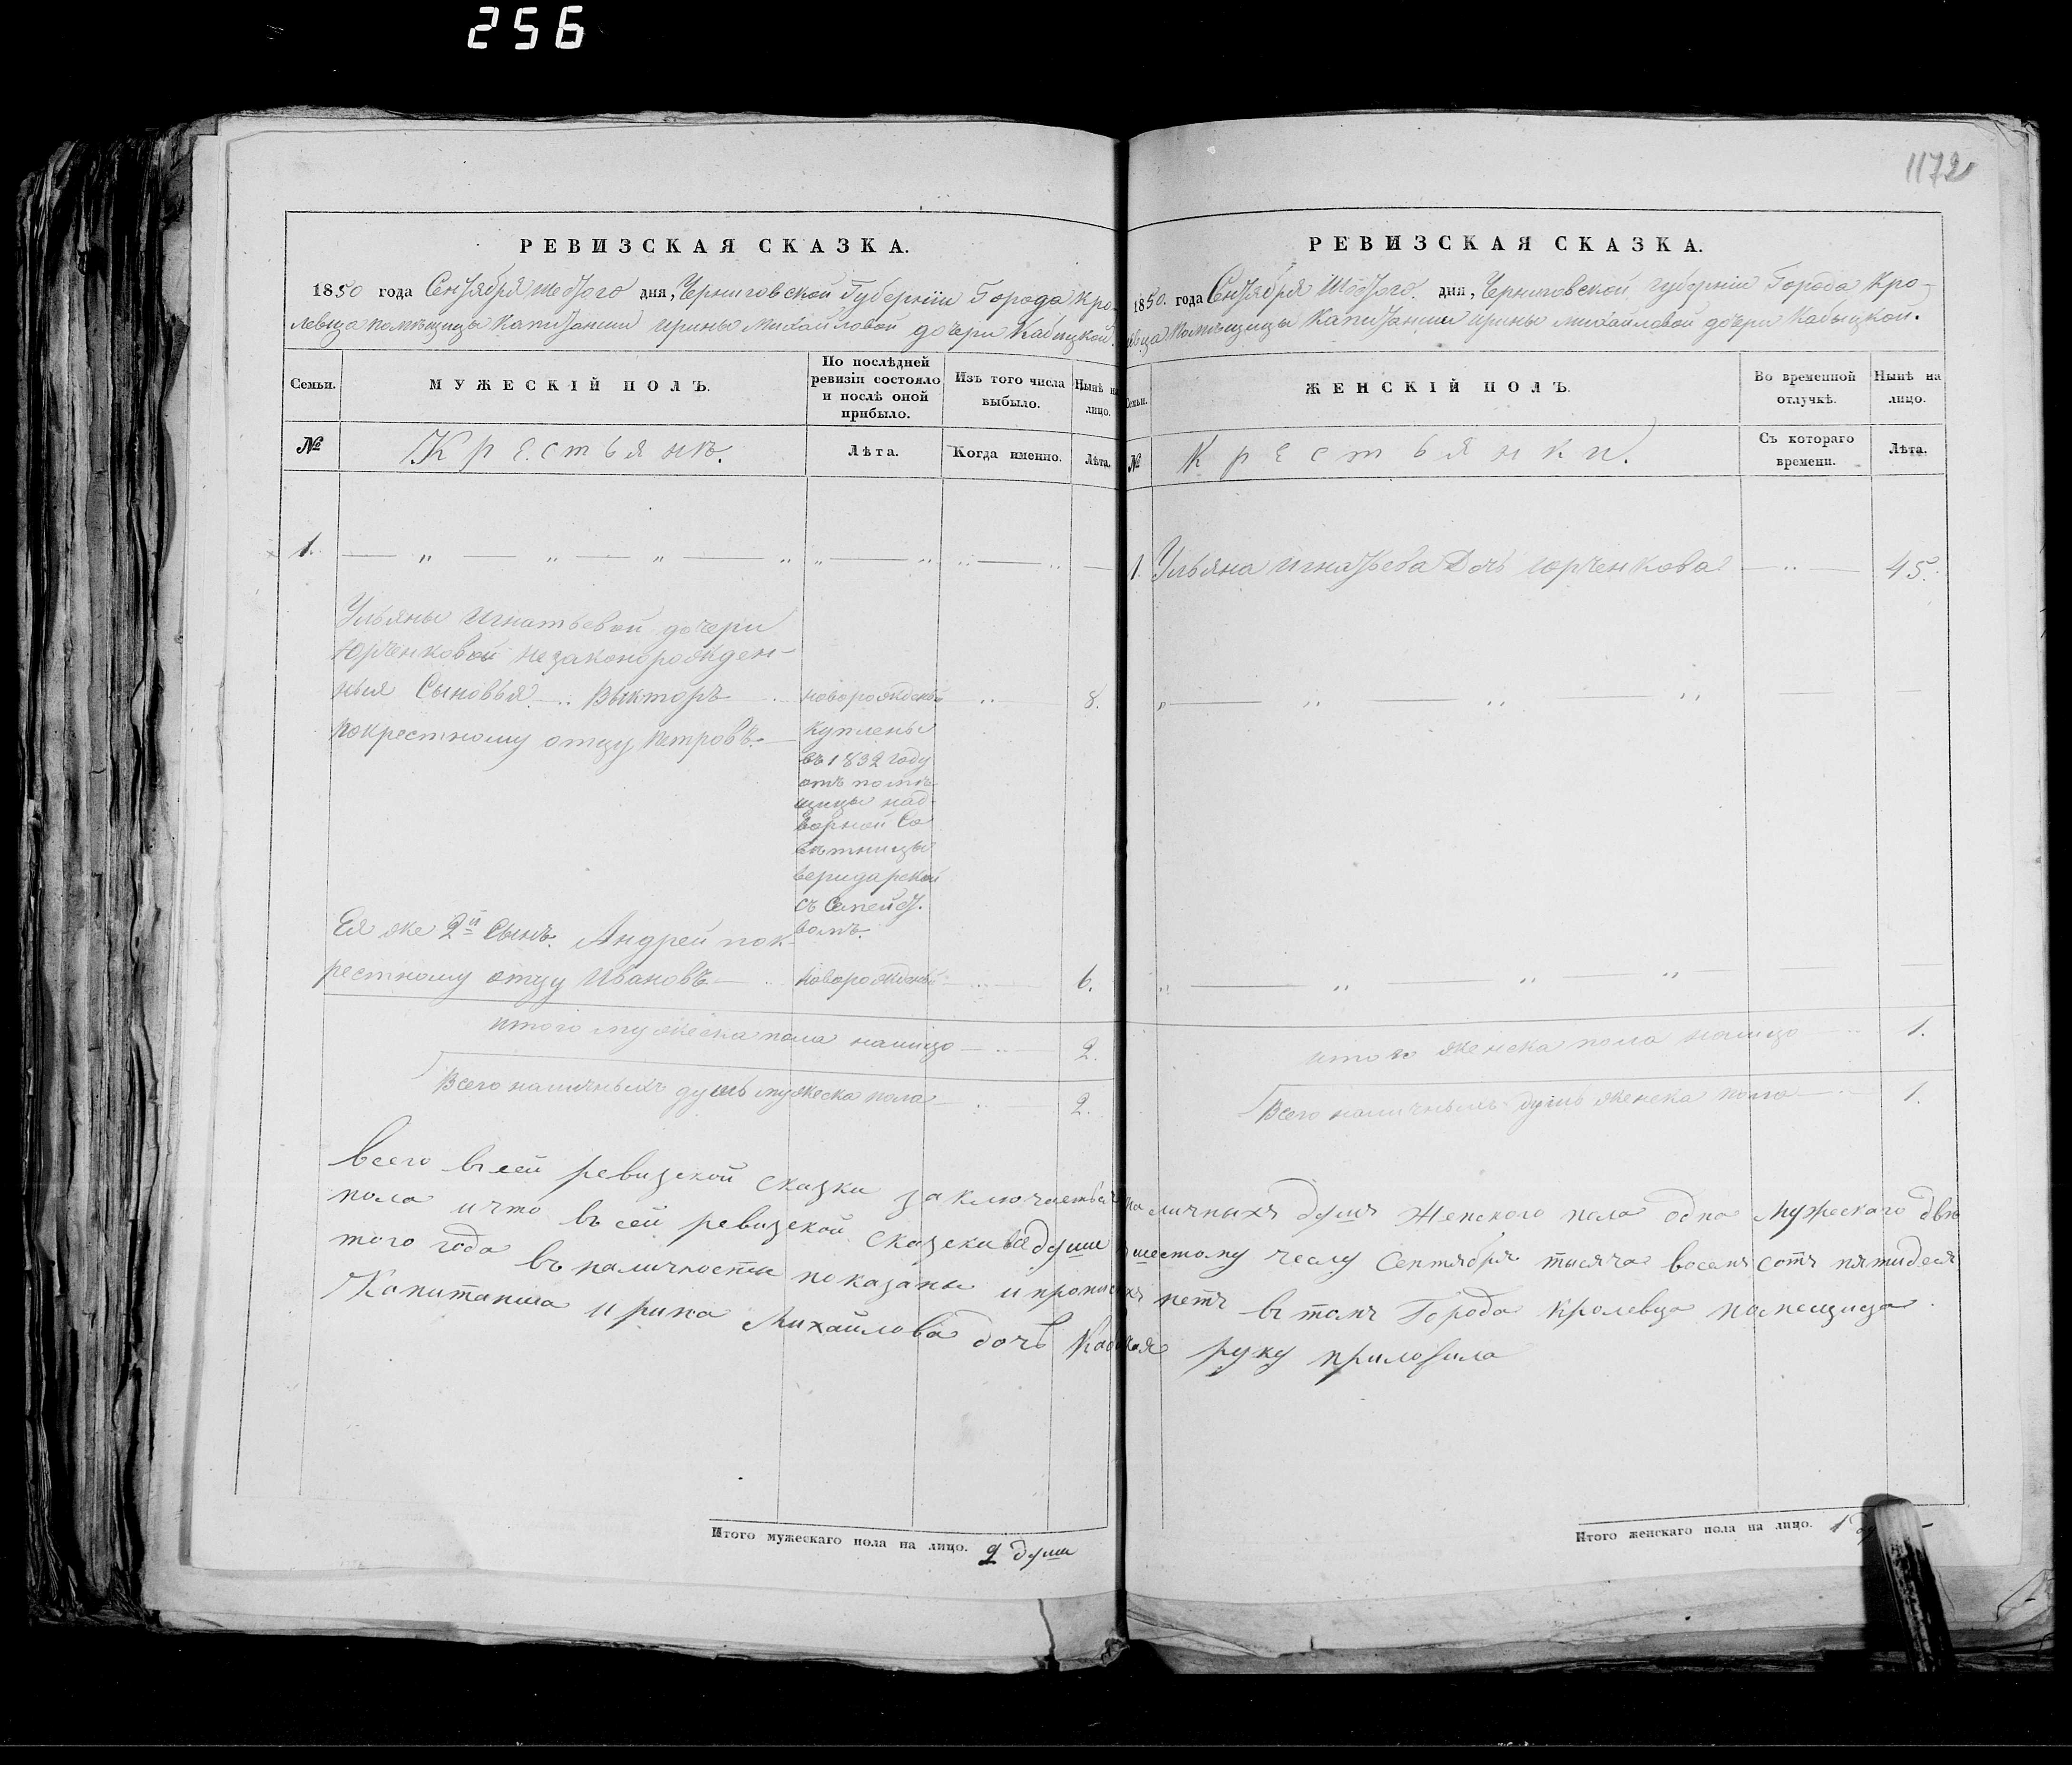 256
1172
РЕВИЗСКАЯ СКАЗКА.
1850 года Сентября шестого дня, Черниговской Губернии Города Кро-
левца помѣщицы Капитанши Ирины Михайловой дочери Кабыцкой.
Семьи.
МУЖЕСКІЙ ПОЛЪ.
По послѣдней
ревизіи состояло
и послѣ оной
прибыло.
Изъ того числа
выбыло.
Нынѣ на
лицо.
№
Крестьянъ.
Лѣта.
Когда именно.
Лѣта.
1.
Ульяны Игнатьевой дочери
Юрченковой незаконорожден-
ныя Сыновья Викторъ новорожденъ 8.
покрестному отцу Петровъ
куплены
въ 1832 году
отъ помѣ-
щицы над-
ворной Со
вѣтницы
съ Семейст.
вомъ.
Ея же 2й Сынъ. Андрей пок-
рестному отцу Ивановъ новорожденъ 6.
итого мужеска пола налицо 2.
Всего наличныхъ душъ мужеска пола 2.
РЕВИЗСКАЯ СКАЗКА.
1850. года Сентября Шестого. дня, Черниговской губерніи Города Кро-
левца Помѣщицы Капитанши Ирины Михайловой дочери Кабыцкой.
Семьи.
ЖЕНСКІЙ ПОЛЪ.
Во временной
отлучкѣ.
Нынѣ на
лицо.
№
Крестьянки.
Съ котораго
времени.
Лѣта.
1. Ульяна Игнатьева Дочь Юрченкова 45.
итого женска пола налицо 1.
Всего наличныхъ душъ женска пола 1.
Всего въ сей ревизской сказки заключается наличныхъ душъ Женского пола одна мужескаго двѣ
пола и что въ сей ревизской сказски все души шестому числу Сентября тысяча восемь сотъ пятидеся
того года въ наличности показаны и прописныхъ нетъ въ томъ Города Кролевца помещица
Капитанша Ирина Михайлова дочь Кабыцкая руку приложила
Итого мужескаго пола на лицо. 2 души
Итого женскаго пола на лицо. 1